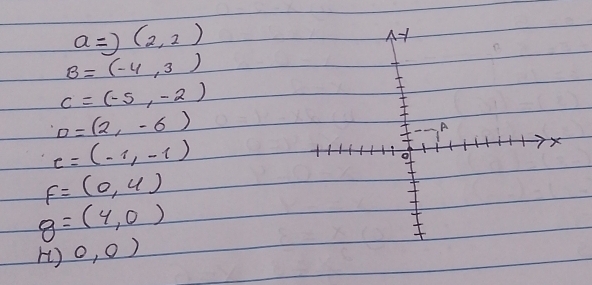 a=) (2,2)
B= (-4,3)
C= (-5,-2)
D=(2,-6)
e=(-1,-1)
f=(0,4)
g=(4,0)
H) 0,0)
Y
A
0
X